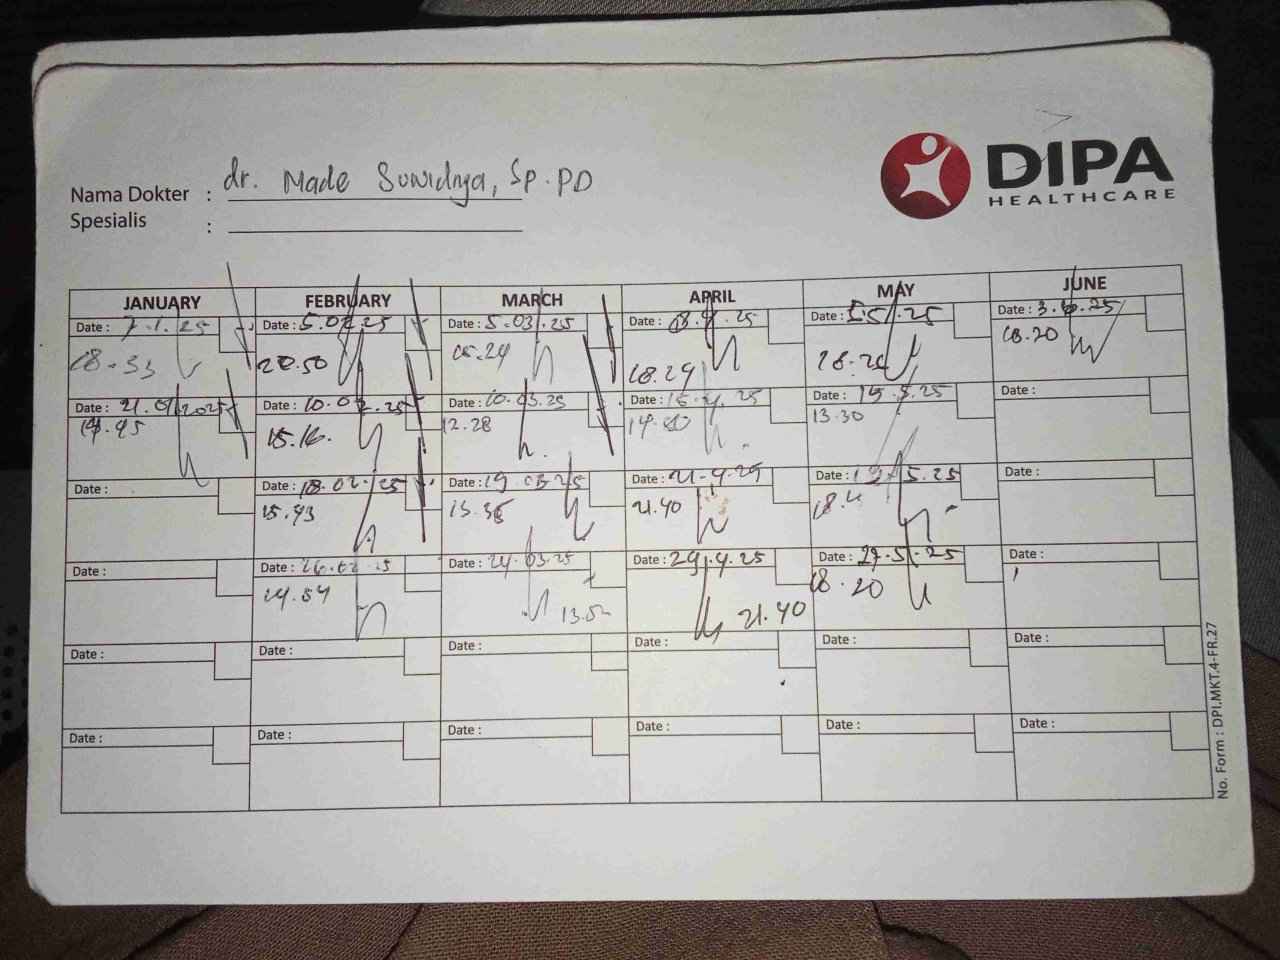 DIPA
HEALTHCARE
Nama Dokter : dr. Made Suwidnya, Sp.PD
Spesialis :
JANUARY FEBRUARY MARCH APRIL MAY JUNE
Date : 7.1.25 Date : 5.02.25 Date : 5.03.25 Date : 03.4.25 Date : 5.5.25 Date : 3.6.25
18.33 20.50 15.24 18.29 18.20 18.20
Date : 21.01.2025 Date : 10.02.25 Date : 10.03.25 Date : 15.4.25 Date : 15.5.25 Date :
19.45 15.16. 12.28 14.40 13.30
Date : Date : 18.02.25 Date : 19.03.25 Date : 21.4.25 Date : 19.5.25 Date :
15.43 13.35 21.40
Date : Date : 26.02.25 Date : 24.03.25 Date : 29.4.25 Date : 27.5.25 Date :
14.54 21.40 18.20
Date : Date : Date : Date : Date : Date :
Date : Date : Date : Date : Date : Date :
No. Form : DPI.MKT.4-FR.27